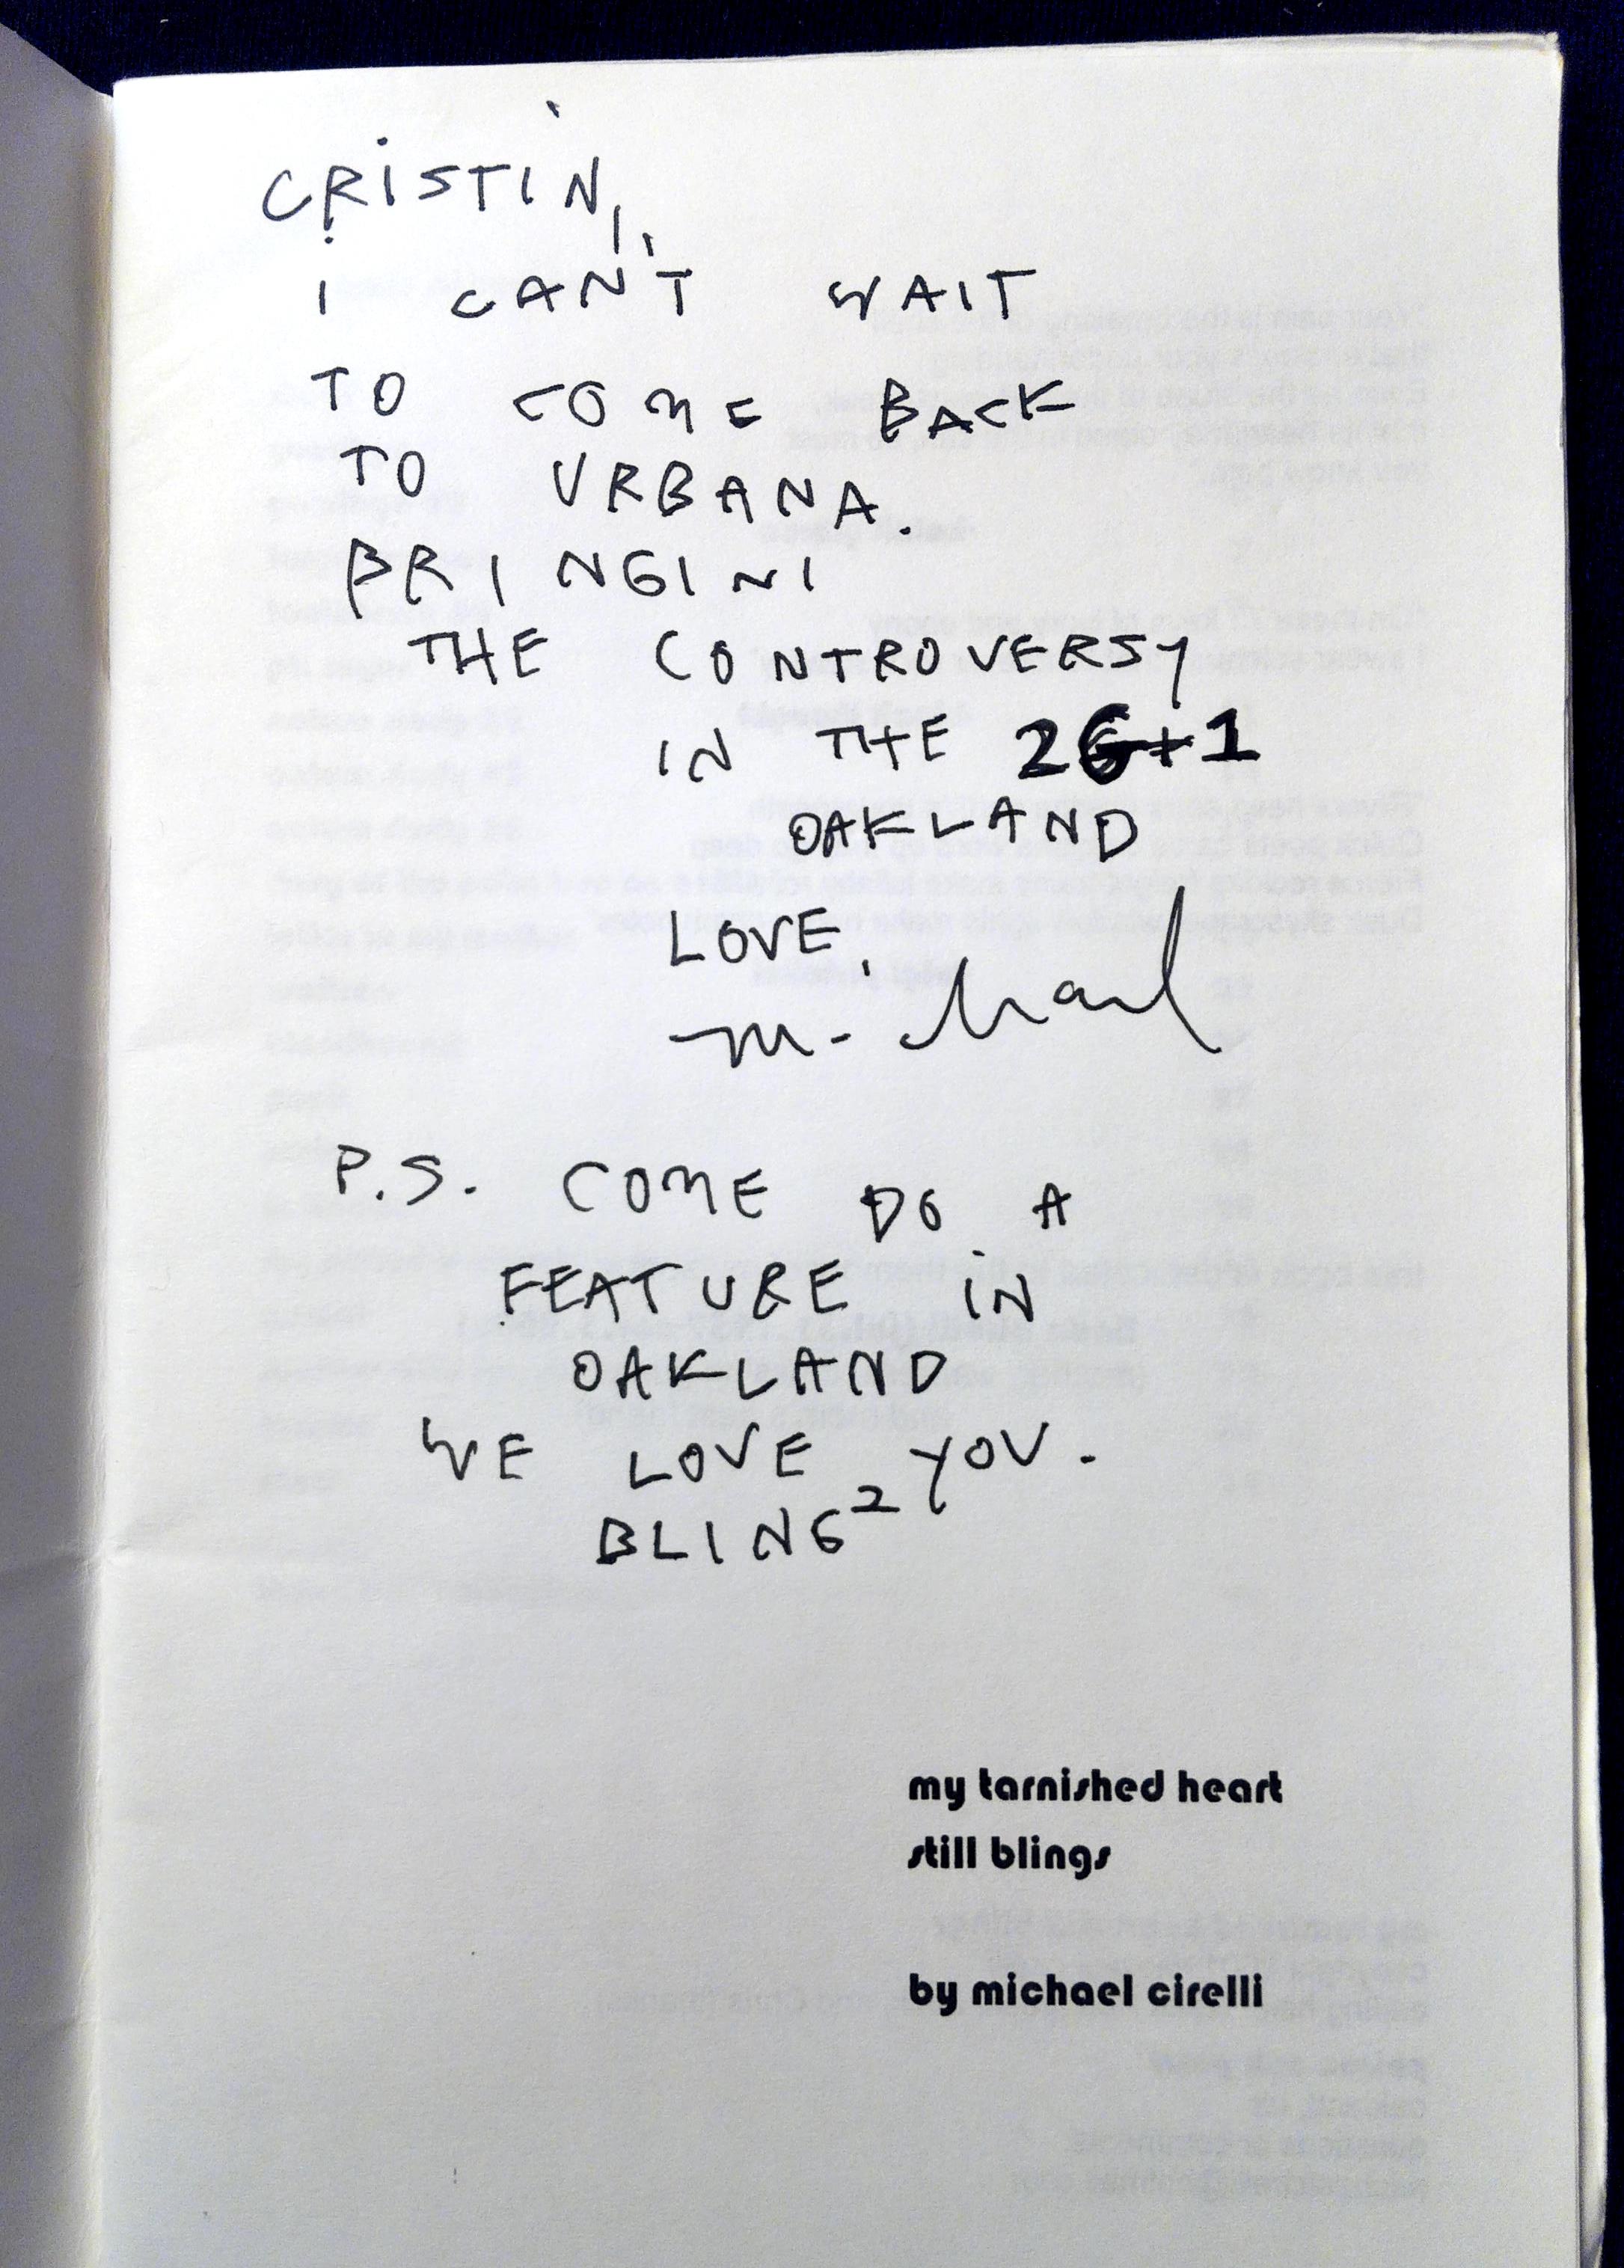 CRISTIN,
I CAN'T WAIT
TO COME BACK
TO URBANA.
BRINGIN
THE CONTROVERSY
IN THE
OAKLAND
LOVE,
Michael
P.S. COME DO A
FEATURE IN
OAKLAND
WE LOVE YOU.
BLING²
my tarnished heart
still blings
by michael cirelli